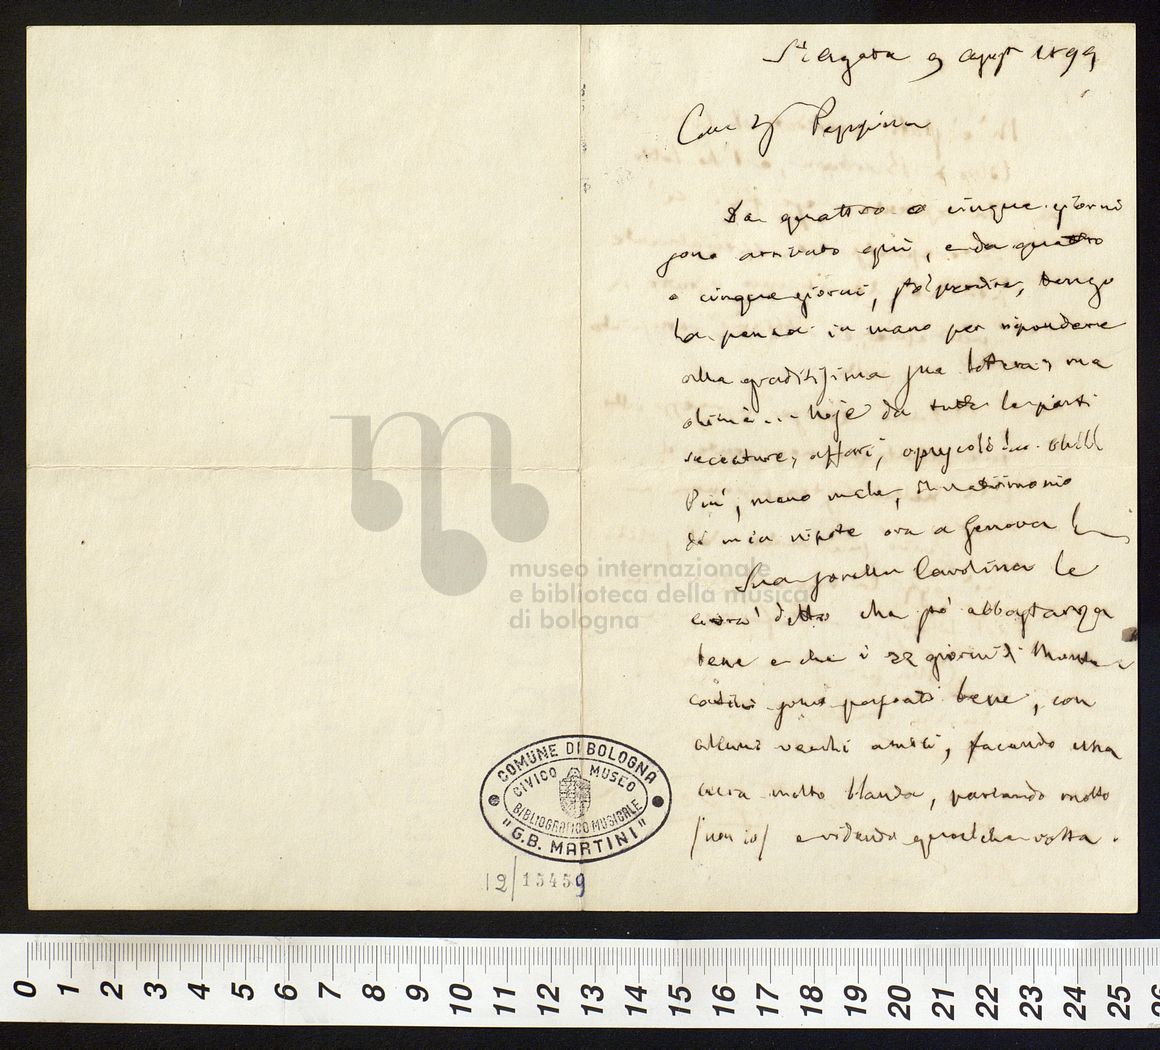 St Agata 9 agost 1899
Cara Sig Peppina
Da quattro o cinque giorni
sono arrivato qui, e da quattro
o cinque giorni, sto per dire, tengo
la penna in mano per rispondere
alla graditissima sua lettera, ma
ohimè... noje da tutte le parti
seccature, affari,
Più, meno male, matrimonio
di mia nipote ora a Genova
Sua sorella Carolina le
avrà detto che sto abbastanza
bene e che i 22 giorni di Monte=
catini sono passati bene, con
alcuni vecchi amici, facendo una
cura molto blanda, parlando molto
/non io/ e ridendo qualche volta.
museo internazionale
e biblioteca della musica
di bologna
COMUNE DI BOLOGNA
CIVICO MUSEO
BIBLIOGRAFICO MUSICALE
"G.B. MARTINI"
12/15459
0 1 2 3 4 5 6 7 8 9 10 11 12 13 14 15 16 17 18 19 20 21 22 23 24 25 26